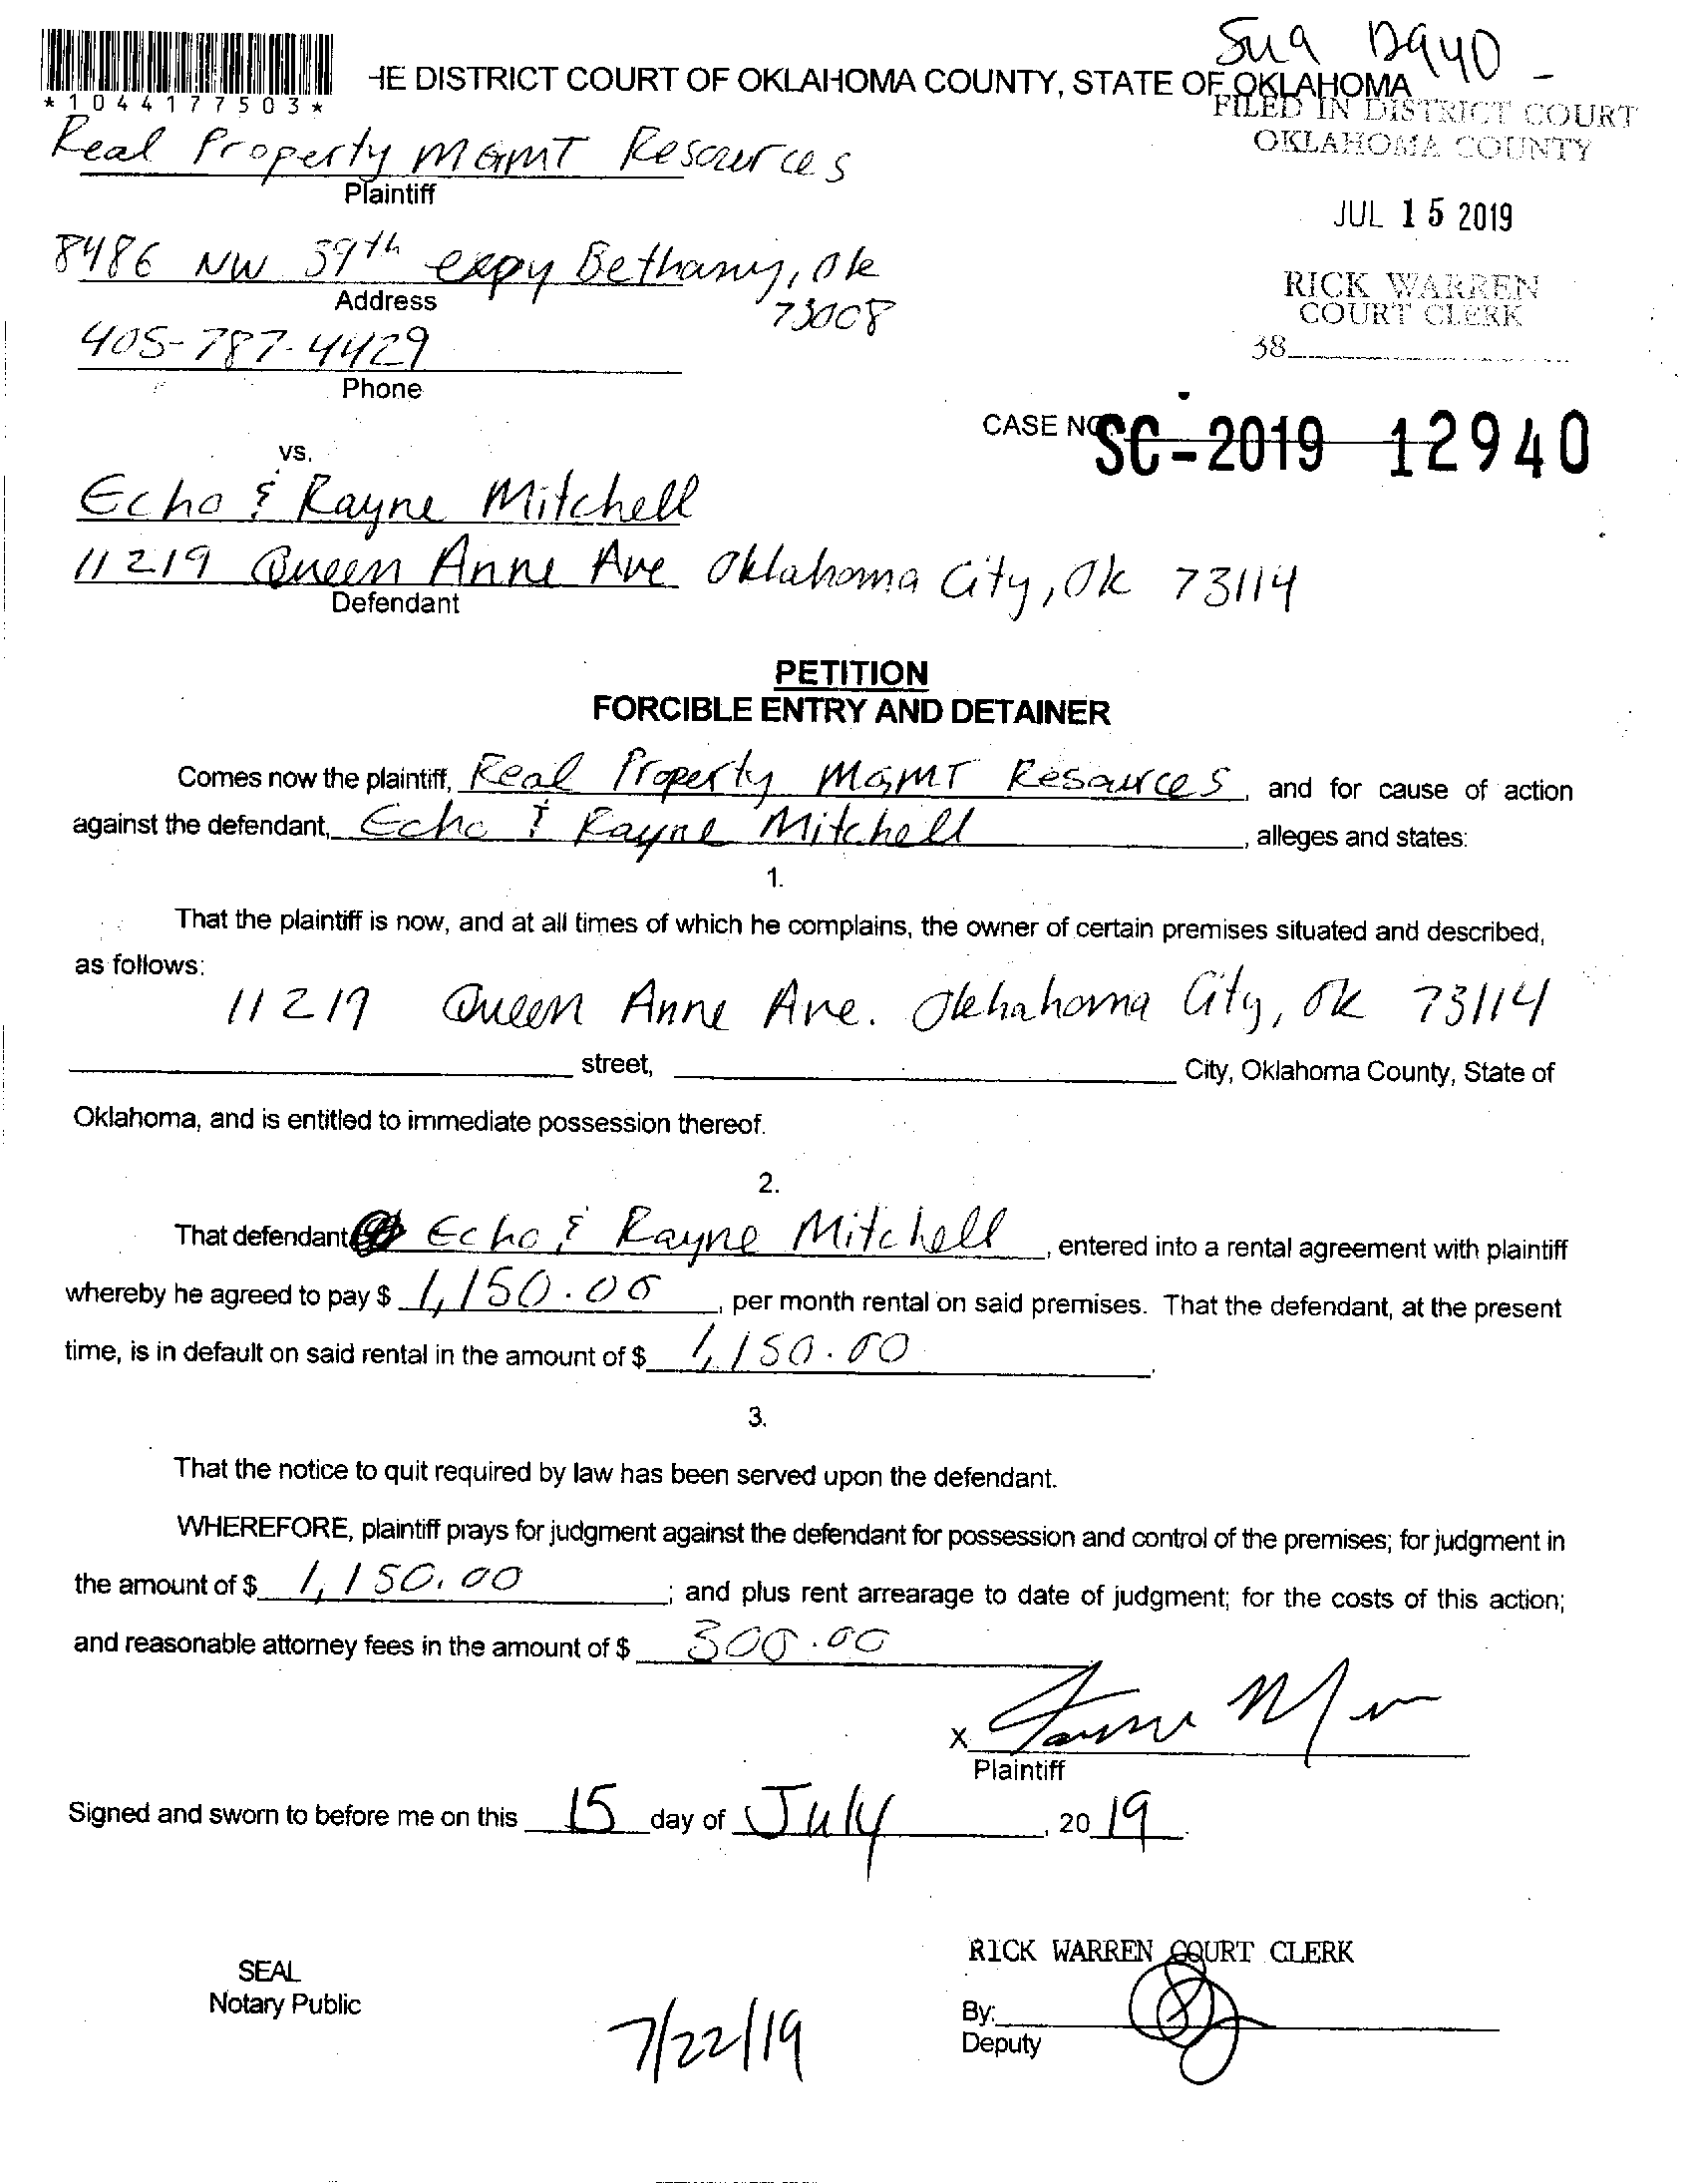 Sug 12940 -
HE DISTRICT COURT OF OKLAHOMA COUNTY, STATE OF OKLAHOMA
*1044177503*
FILED IN DISTRICT COURT
OKLAHOMA COUNTY
Real Property MGMT Resources
Plaintiff
JUL 15 2019
8486 NW 39th expy Bethany, Ok
73008
Address
RICK WARREN
COURT CLERK
38
405-787-4429
Phone
CASE NO. SC-2019 12940
vs.
Echo & Rayne Mitchell
11219 Queen Anne Ave Oklahoma City, Ok 73114
Defendant
PETITION
FORCIBLE ENTRY AND DETAINER
Comes now the plaintiff, Real Property MGMT Resources, and for cause of action
against the defendant, Echo & Rayne Mitchell, alleges and states:
1.
That the plaintiff is now, and at all times of which he complains, the owner of certain premises situated and described,
as follows:
11219 Queen Anne Ave. Oklahoma City, OK 73114
street, City, Oklahoma County, State of
Oklahoma, and is entitled to immediate possession thereof.
2.
That defendant Echo & Rayne Mitchell, entered into a rental agreement with plaintiff
whereby he agreed to pay $ 1,150.00, per month rental on said premises. That the defendant, at the present
time, is in default on said rental in the amount of $ 1,150.00.
3.
That the notice to quit required by law has been served upon the defendant.
WHEREFORE, plaintiff prays for judgment against the defendant for possession and control of the premises; for judgment in
the amount of $ 1,150.00; and plus rent arrearage to date of judgment; for the costs of this action;
and reasonable attorney fees in the amount of $ 300.00
X
Plaintiff
Signed and sworn to before me on this 15 day of July, 20 19.
RICK WARREN COURT CLERK
SEAL
Notary Public
7/22/19
By:
Deputy